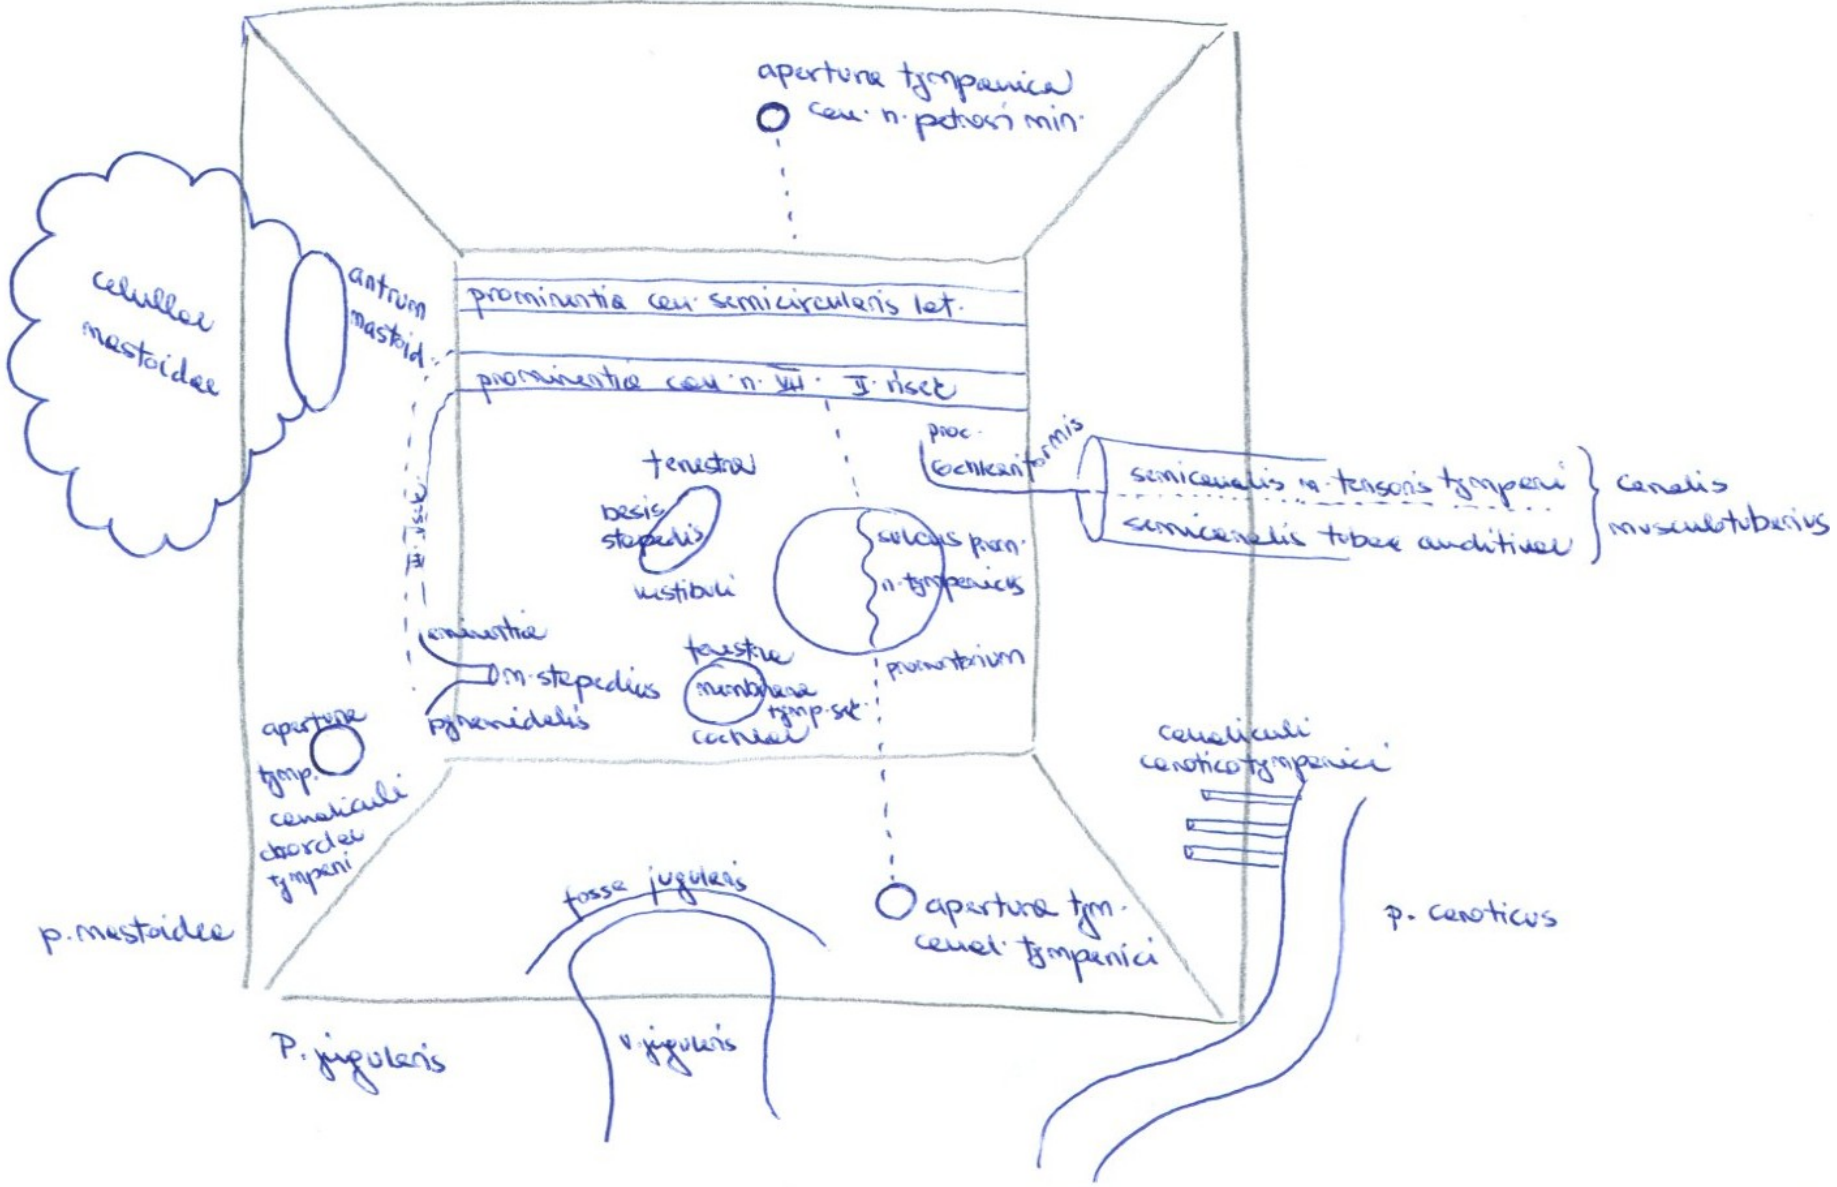 apertura tympanica
can. n. petrosi min.
celullae
mastoidae
antrum
mastoid.
prominentia can. semicircularis lat.
prominentia can. n. VII. II. úsek
III. úsek
proc.
cochleariformis
semicanalis m. tensoris tympani
semicanalis tubae auditivae
canalis
musculotubarius
fenestra
basis
stapedis
vestibuli
sulcus prom.
n. tympanicus
promontorium
eminentia
m. stapedius
pyramidalis
fenestra
membrana
tymp. sec.
cochlae
apertura
tymp.
canaliculi
chordae
tympani
canaliculi
caroticotympanici
fossa jugularis
apertura tym.
canal. tympanici
p. mastoidea
p. caroticus
P. jugularis
v. jugularis